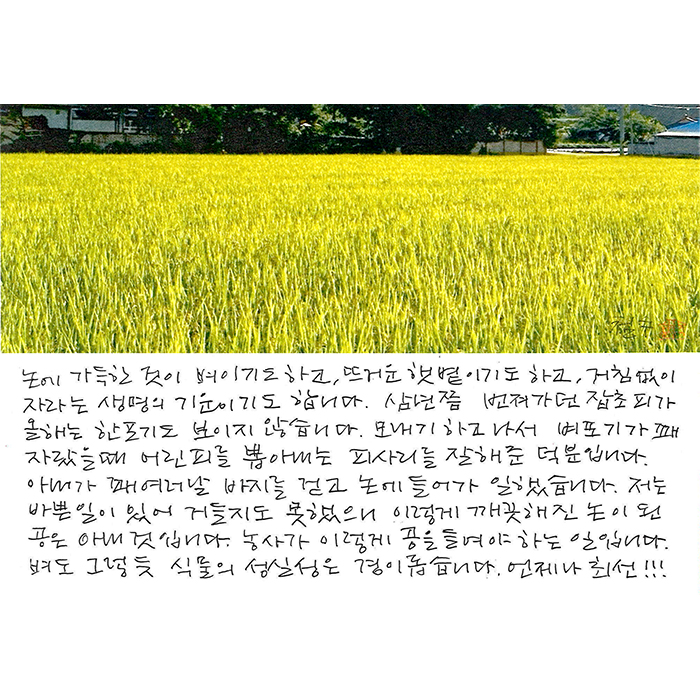 논에 가득한 것이 벼이기도하고, 뜨거운 햇볕이기도 하고, 거침없이
자라는 생명의 기운이기도 합니다. 삼년쯤 번져가던 잡초 피가
올해는 한포기도 보이지 않습니다. 모내기 하고 나서 벼포기가 꽤
자랐을때 어린피를 뽑아내는 피사리를 잘해준 덕분입니다.
아내가 꽤 여러날 바지를 걷고 논에 들어가 일했습니다. 저는
바쁜일이 있어 거들지도 못했으니 이렇게 깨끗해진 논이 된
공은 아내 것입니다. 농사가 이렇게 품을 들여야 하는 일입니다.
벼도 그렇듯 식물의 성실성은 경이롭습니다. 언제나 최선!!!